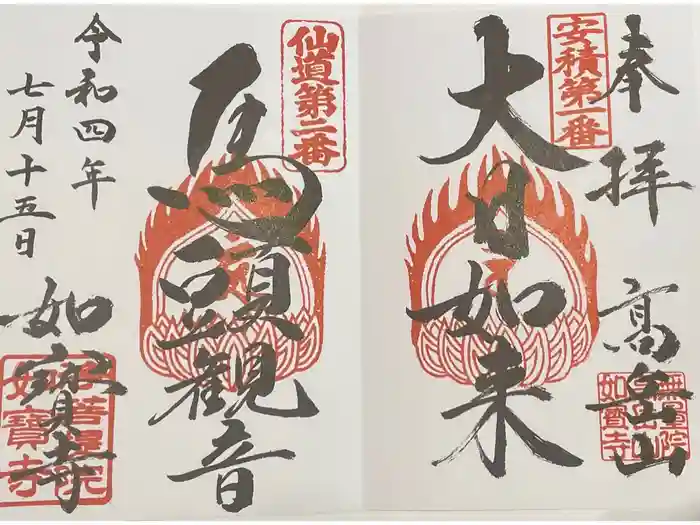 奉拝
安積第一番
大日如来
高岳山
無量院
如寳寺
仙道第二番
馬頭観音
令和四年
七月十五日
如宝寺
如寳寺